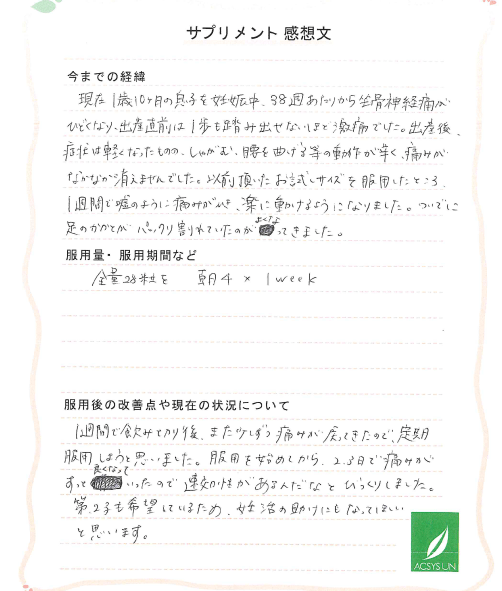 サプリメント 感想文
今までの経緯
現在1歳10ヶ月の息子を妊娠中、38週あたりから坐骨神経痛が
ひどくなり、出産直前は1歩も踏み出せないほど激痛でした。出産後、
症状は軽くなったものの、しゃがむ、腰を曲げる等の動作が辛く、痛みが
なかなか消えませんでした。以前頂いたお試しサイズを服用したところ、
1週間で嘘のように痛みがひき、楽に動けるようになりました。ついでに
足のかかとがパックリ割れていたのがよくなってきました。
服用量・服用期間など
全量28粒を 朝4 × 1week
服用後の改善点や現在の状況について
1週間で飲みきり後、また少しずつ痛みが戻ってきたので、定期
服用しようと思いました。服用を始めてから、2.3日で痛みが
すっと良くなっていったので速効性があるんだなとびっくりしました。
第2子も希望しているため、妊活の助けにもなってほしい
と思います。
ACSYSUN